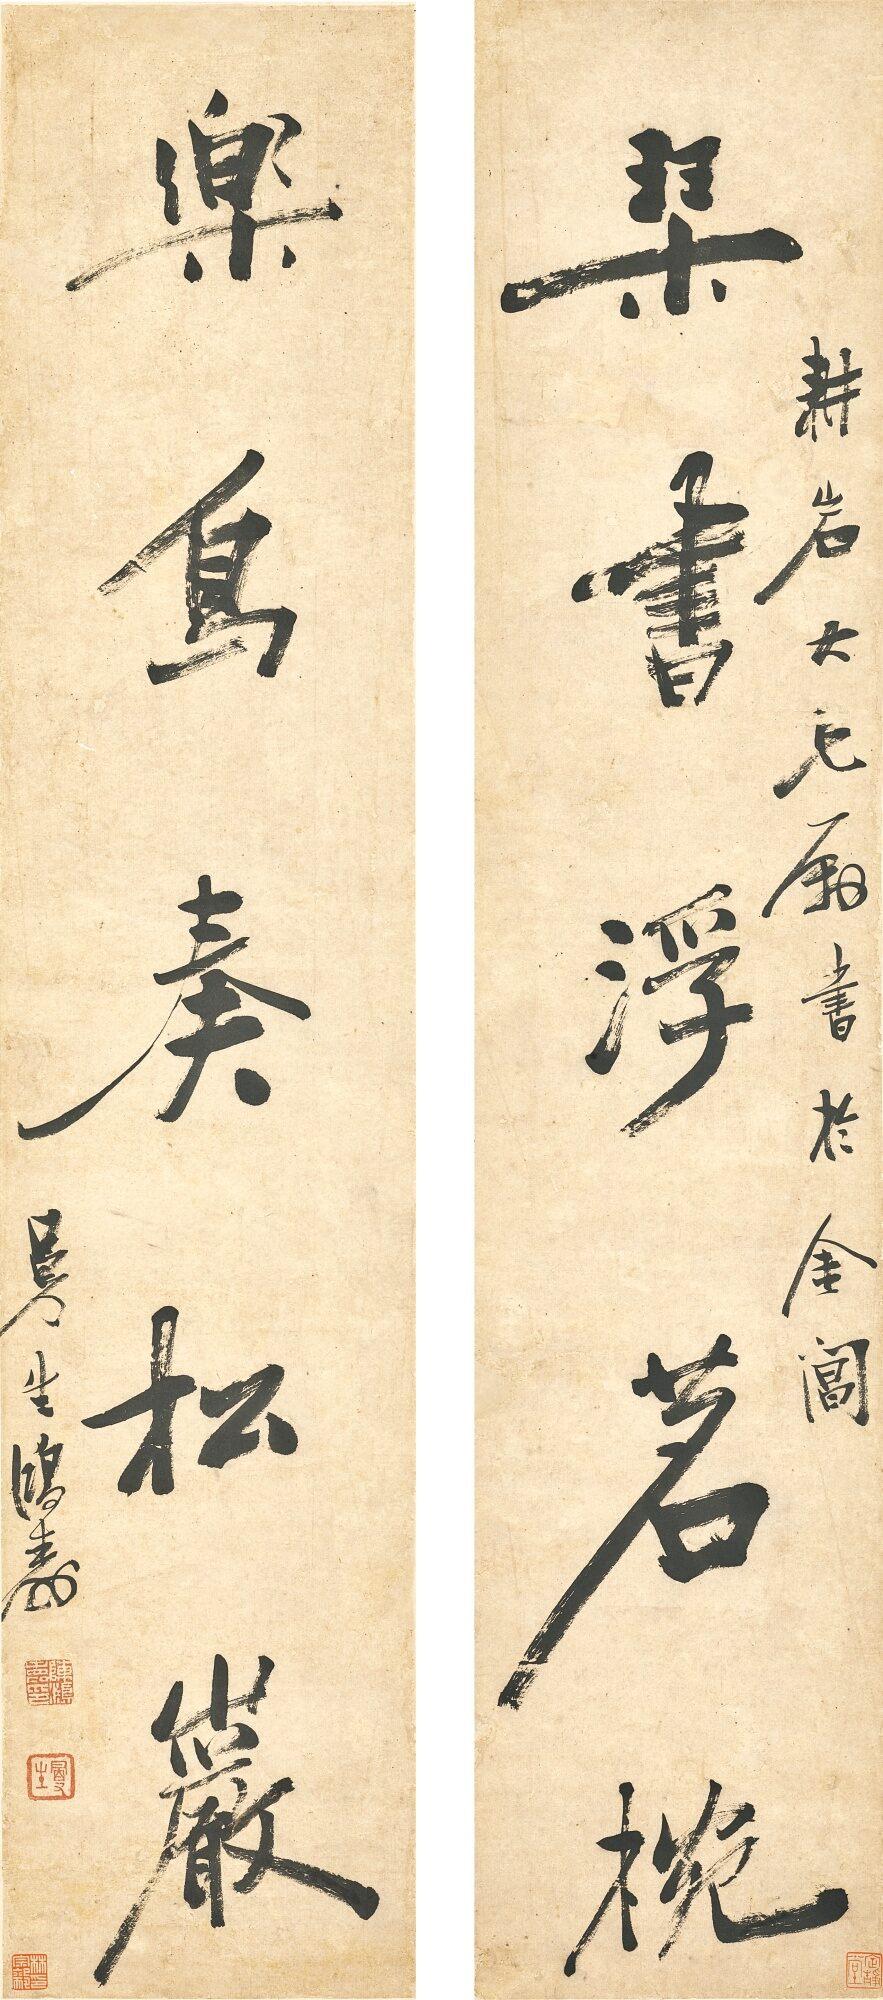 琹書浮茗椀
耕岩大兄属書於金閶
樂鳥奏松巖
曼生鴻壽
陳鴻壽印
曼生
定靜堂